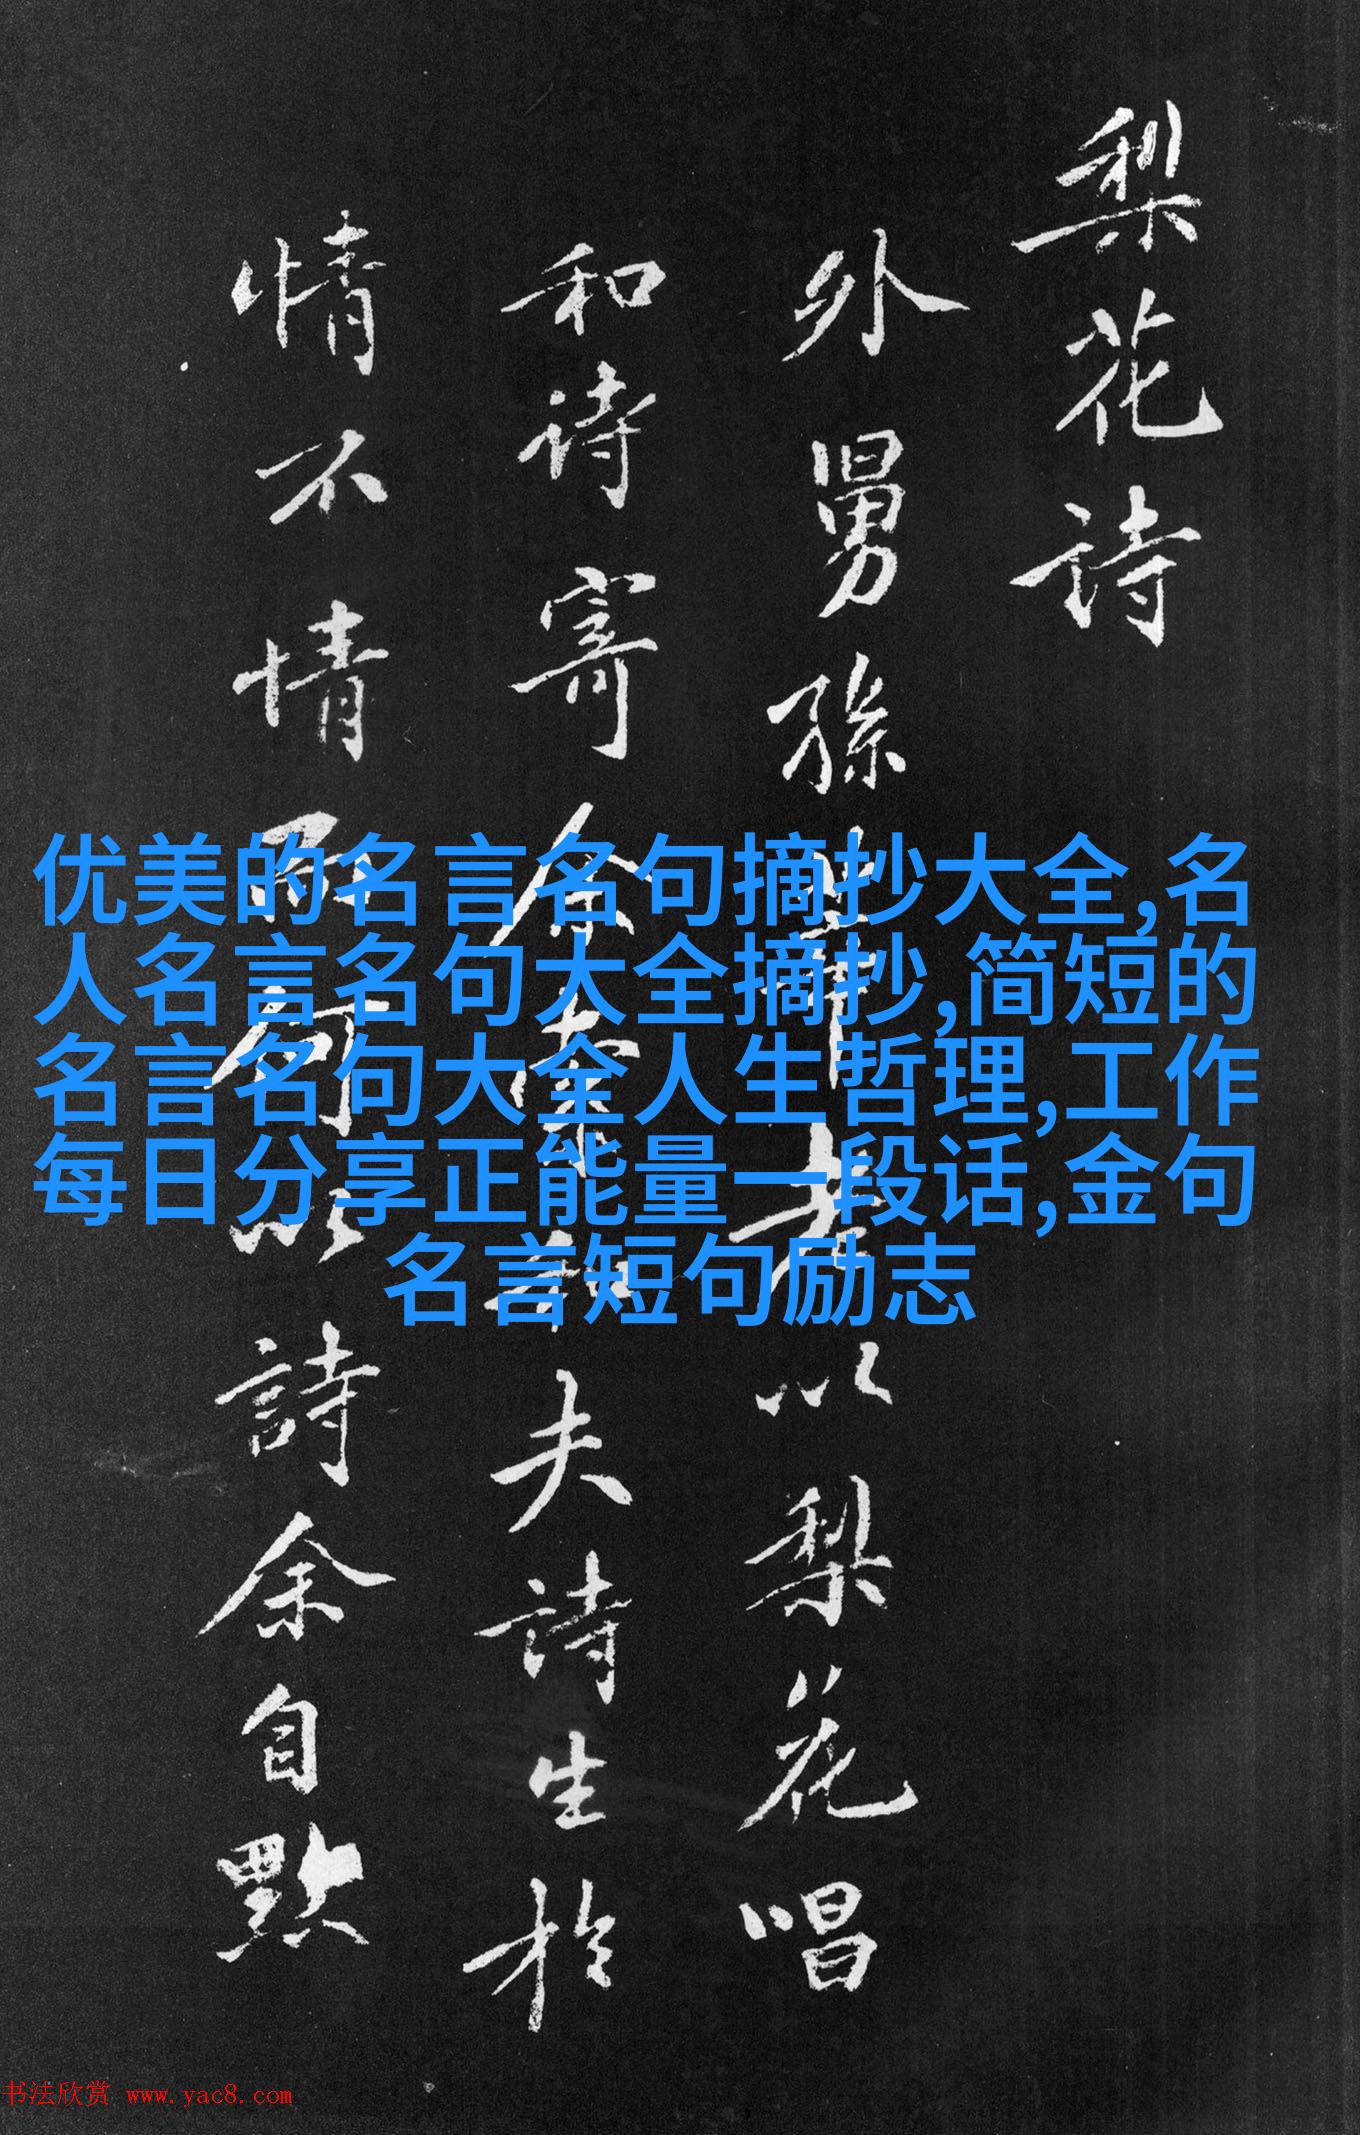 梨花詩
外舅孫莘老以梨花唱
和诗寄余索和夫詩生於
情不情而何以詩余自默
优美的名言名句摘抄大全,名
人名言名句大全摘抄,简短的
名言名句大全人生哲理,工作
每日分享正能量一段话,金句
名言短句励志
书法欣赏 www.yac8.com